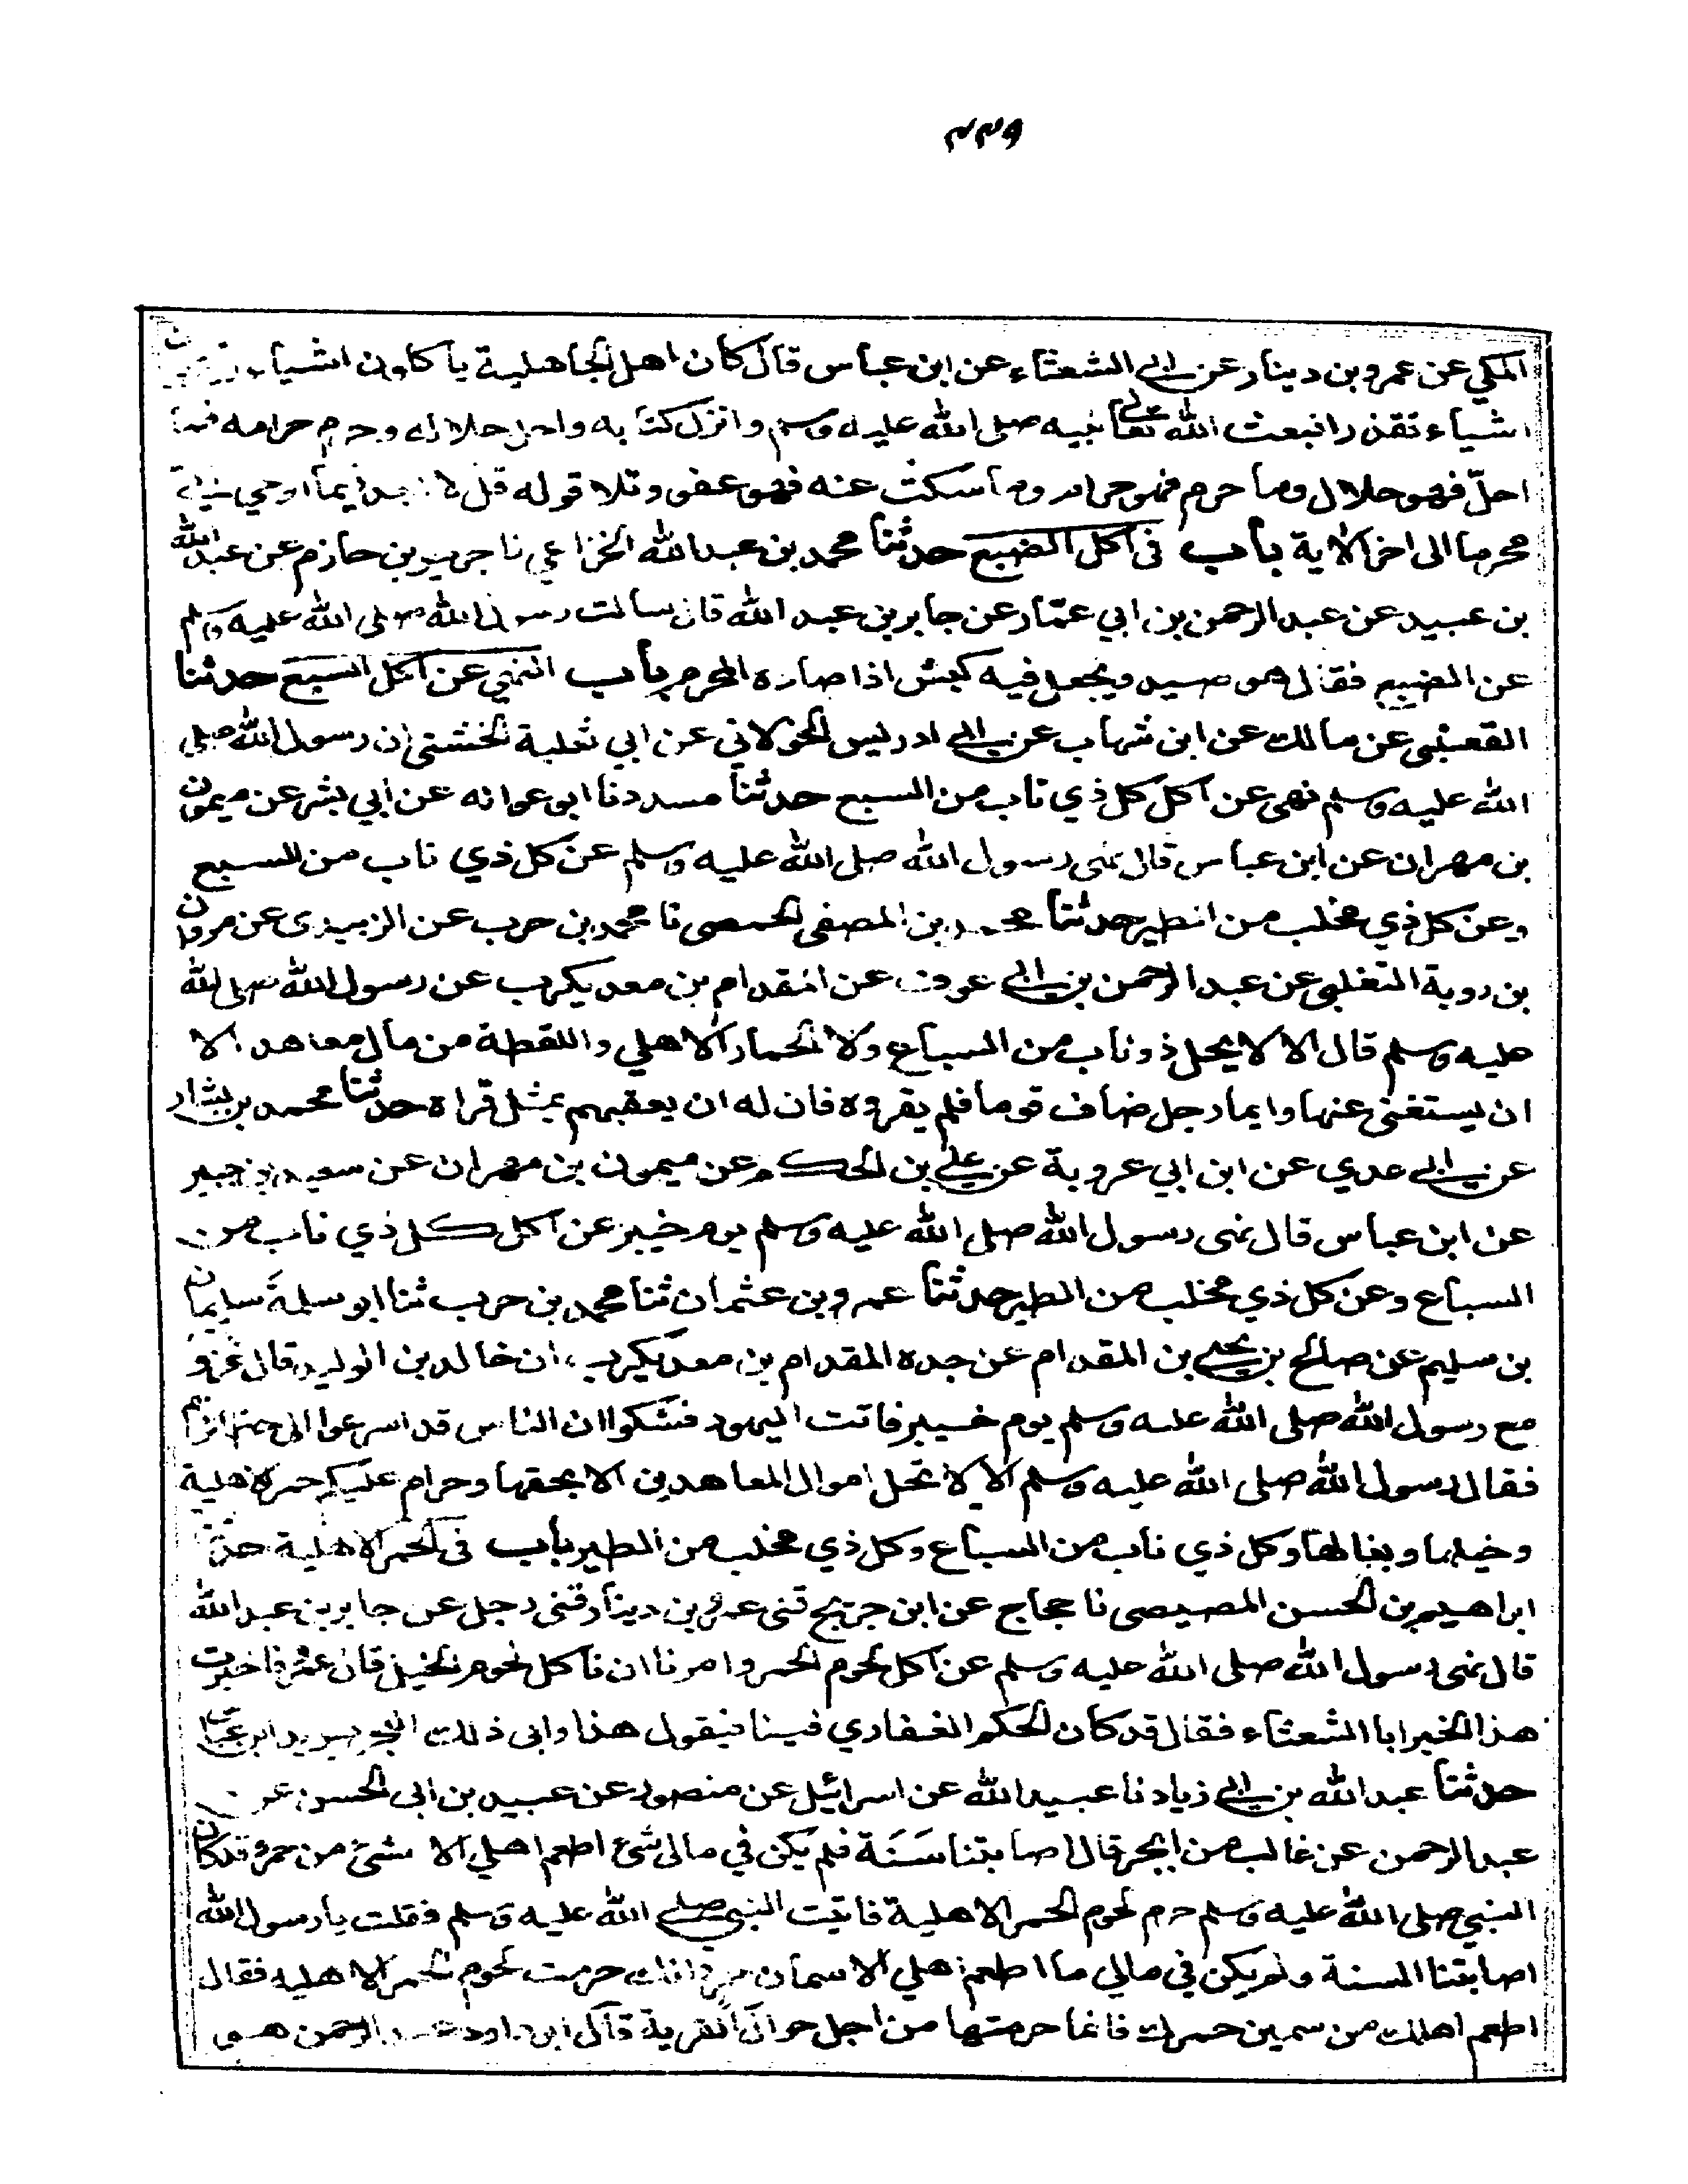 ٤٣٩
المكي عن عمرو بن دينار عن ابي الشعثاء عن ابن عباس قال كان اهل الجاهلية ياكلون اشياء
اشياء تقذرا فبعث الله تعالى نبيه صلى الله عليه وسلم وانزل كتابه واحل حلاله وحرم حرامه فما
احلّ فهو حلال وما حرم فهو حرام وما سكت عنه فهو عفو وتلا قوله قل لا اجد فيما اوحي الي
محرما الى اخر الاية باب في اكل الضبع حدثنا محمد بن عبد الله الخزاعي نا جرير بن حازم عن عبد الله
بن عبيد عن عبد الرحمن بن ابي عمّار عن جابر بن عبد الله قال سالت رسول الله صلى الله عليه وسلم
عن الضبع فقال هو صيد ويجعل فيه كبش اذا صاده المحرم باب النهي عن اكل السبع حدثنا
القعنبى عن مالك عن ابن شهاب عن ابي ادريس الخولاني عن ابي ثعلبة الخشنى ان رسول الله صلى
الله عليه وسلم نهى عن اكل كل ذي ناب من السبع حدثنا مسدد نا ابو عوانه عن ابي بشر عن ميمون
بن مهران عن ابن عباس قال نهى رسول الله صلى الله عليه وسلم عن كل ذي ناب من السبع
وعن كل ذي مخلب من الطير حدثنا محمد بن المصفى الحمصى نا محمد بن حرب عن الزبيدى عن مروان
بن روبة التغلبى عن عبد الرحمن بن ابي عوف عن المقدام بن معديكرب عن رسول الله صلى الله
عليه وسلم قال الا لا يحل ذو ناب من السباع ولا الحمار الاهلي واللقطة من مال معاهد الا
ان يستغنى عنها وايما رجل ضاف قوما فلم يقروه فان له ان يعقبهم بمثل قراه حدثنا محمد بن بشار
عن ابي عدي عن ابن ابي عروبة عن علي بن الحكم عن ميمون بن مهران عن سعيد بن جبير
عن ابن عباس قال نهى رسول الله صلى الله عليه وسلم يوم خيبر عن اكل كل ذي ناب من
السباع وعن كل ذي مخلب من الطير حدثنا عمرو بن عثمان ثنا محمد بن حرب ثنا ابو سلمة سليمان
بن سليم عن صالح بن يحيى بن المقدام عن جده المقدام بن معديكرب ان خالد بن الوليد قال غزو
مع رسول الله صلى الله عليه وسلم يوم خيبر فاتت اليهود فشكوا ان الناس قد اسرعوا الى
فقال رسول الله صلى الله عليه وسلم الا لا تحل اموال المعاهدين الا بحقها وحرام عليكم حمر الاهلية
وخيلها وبغالها وكل ذي ناب من السباع وكل ذي مخلب من الطير باب في الحمر الاهلية حدثنا
ابراهيم بن الحسن المصيصى نا حجاج عن ابن جريج قثنى عمرو بن دينار قثنى رجل عن جابر بن عبد الله
قال نهى رسول الله صلى الله عليه وسلم عن اكل لحوم الحمر وامرنا ان ناكل لحوم الخيل قال عمرو فاخبرت
هذا الخبر ابا الشعثاء فقال قد كان الحكم الغفاري فينا فيقول هذا وابى ذلك البحر يريد ابن عباس
حدثنا عبد الله بن ابي زياد نا عبيد الله عن اسرائيل عن منصور عن عبيد بن ابى الحسن عن
عبد الرحمن عن غالب من ابجر قال اصابتنا سَنَة فلم يكن في مالى شئ اطعم اهلي الا شئ من حمر وقد كان
النبي صلى الله عليه وسلم حرم لحوم الحمر الاهلية فاتيت النبي صلى الله عليه وسلم فقلت يا رسول الله
اصابتنا السنة ولم يكن في مالي ما اطعم اهلي الا سمان حمر وانك حرمت لحوم الحمر الاهليه فقال
اطعم اهلك من سمين حمرك فانما حرمتها من اجل جوال القرية قال ابو داود عبد الرحمن هو